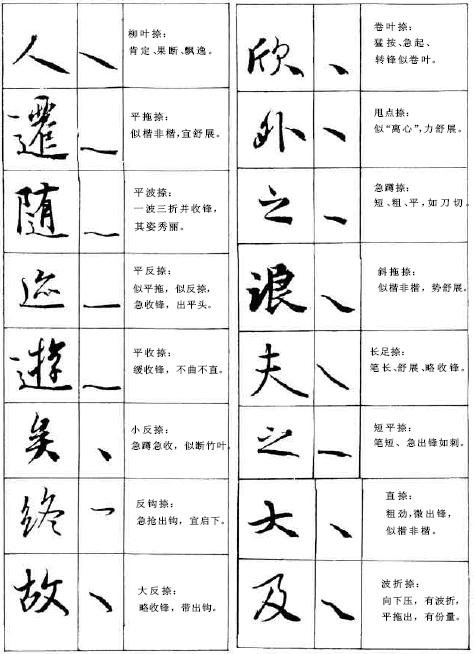 人
柳叶捺：
肯定、果断、飘逸。
遷
平拖捺：
似楷非楷，宜舒展。
随
平波捺：
一波三折并收锋，
其姿秀丽。
迹
平反捺：
似平拖，似反捺，
急收锋，出平头。
遊
平收捺：
缓收锋，不曲不直。
矣
小反捺：
急蹲急收，似断竹叶。
终
反钩捺：
急抢出钩，宜启下。
故
大反捺：
略收锋，带出钩。
欣
卷叶捺：
猛按、急起、
转锋似卷叶。
外
甩点捺：
似“离心”，力舒展。
之
急蹲捺：
短、粗、平，如刀切。
浪
斜拖捺：
似楷非楷，势舒展。
夫
长足捺：
笔长、舒展、略收锋。
之
短平捺：
笔短、急出锋如刺。
大
直捺：
粗劲，微出锋，
似楷非楷。
及
波折捺：
向下压，有波折，
平拖出，有份量。